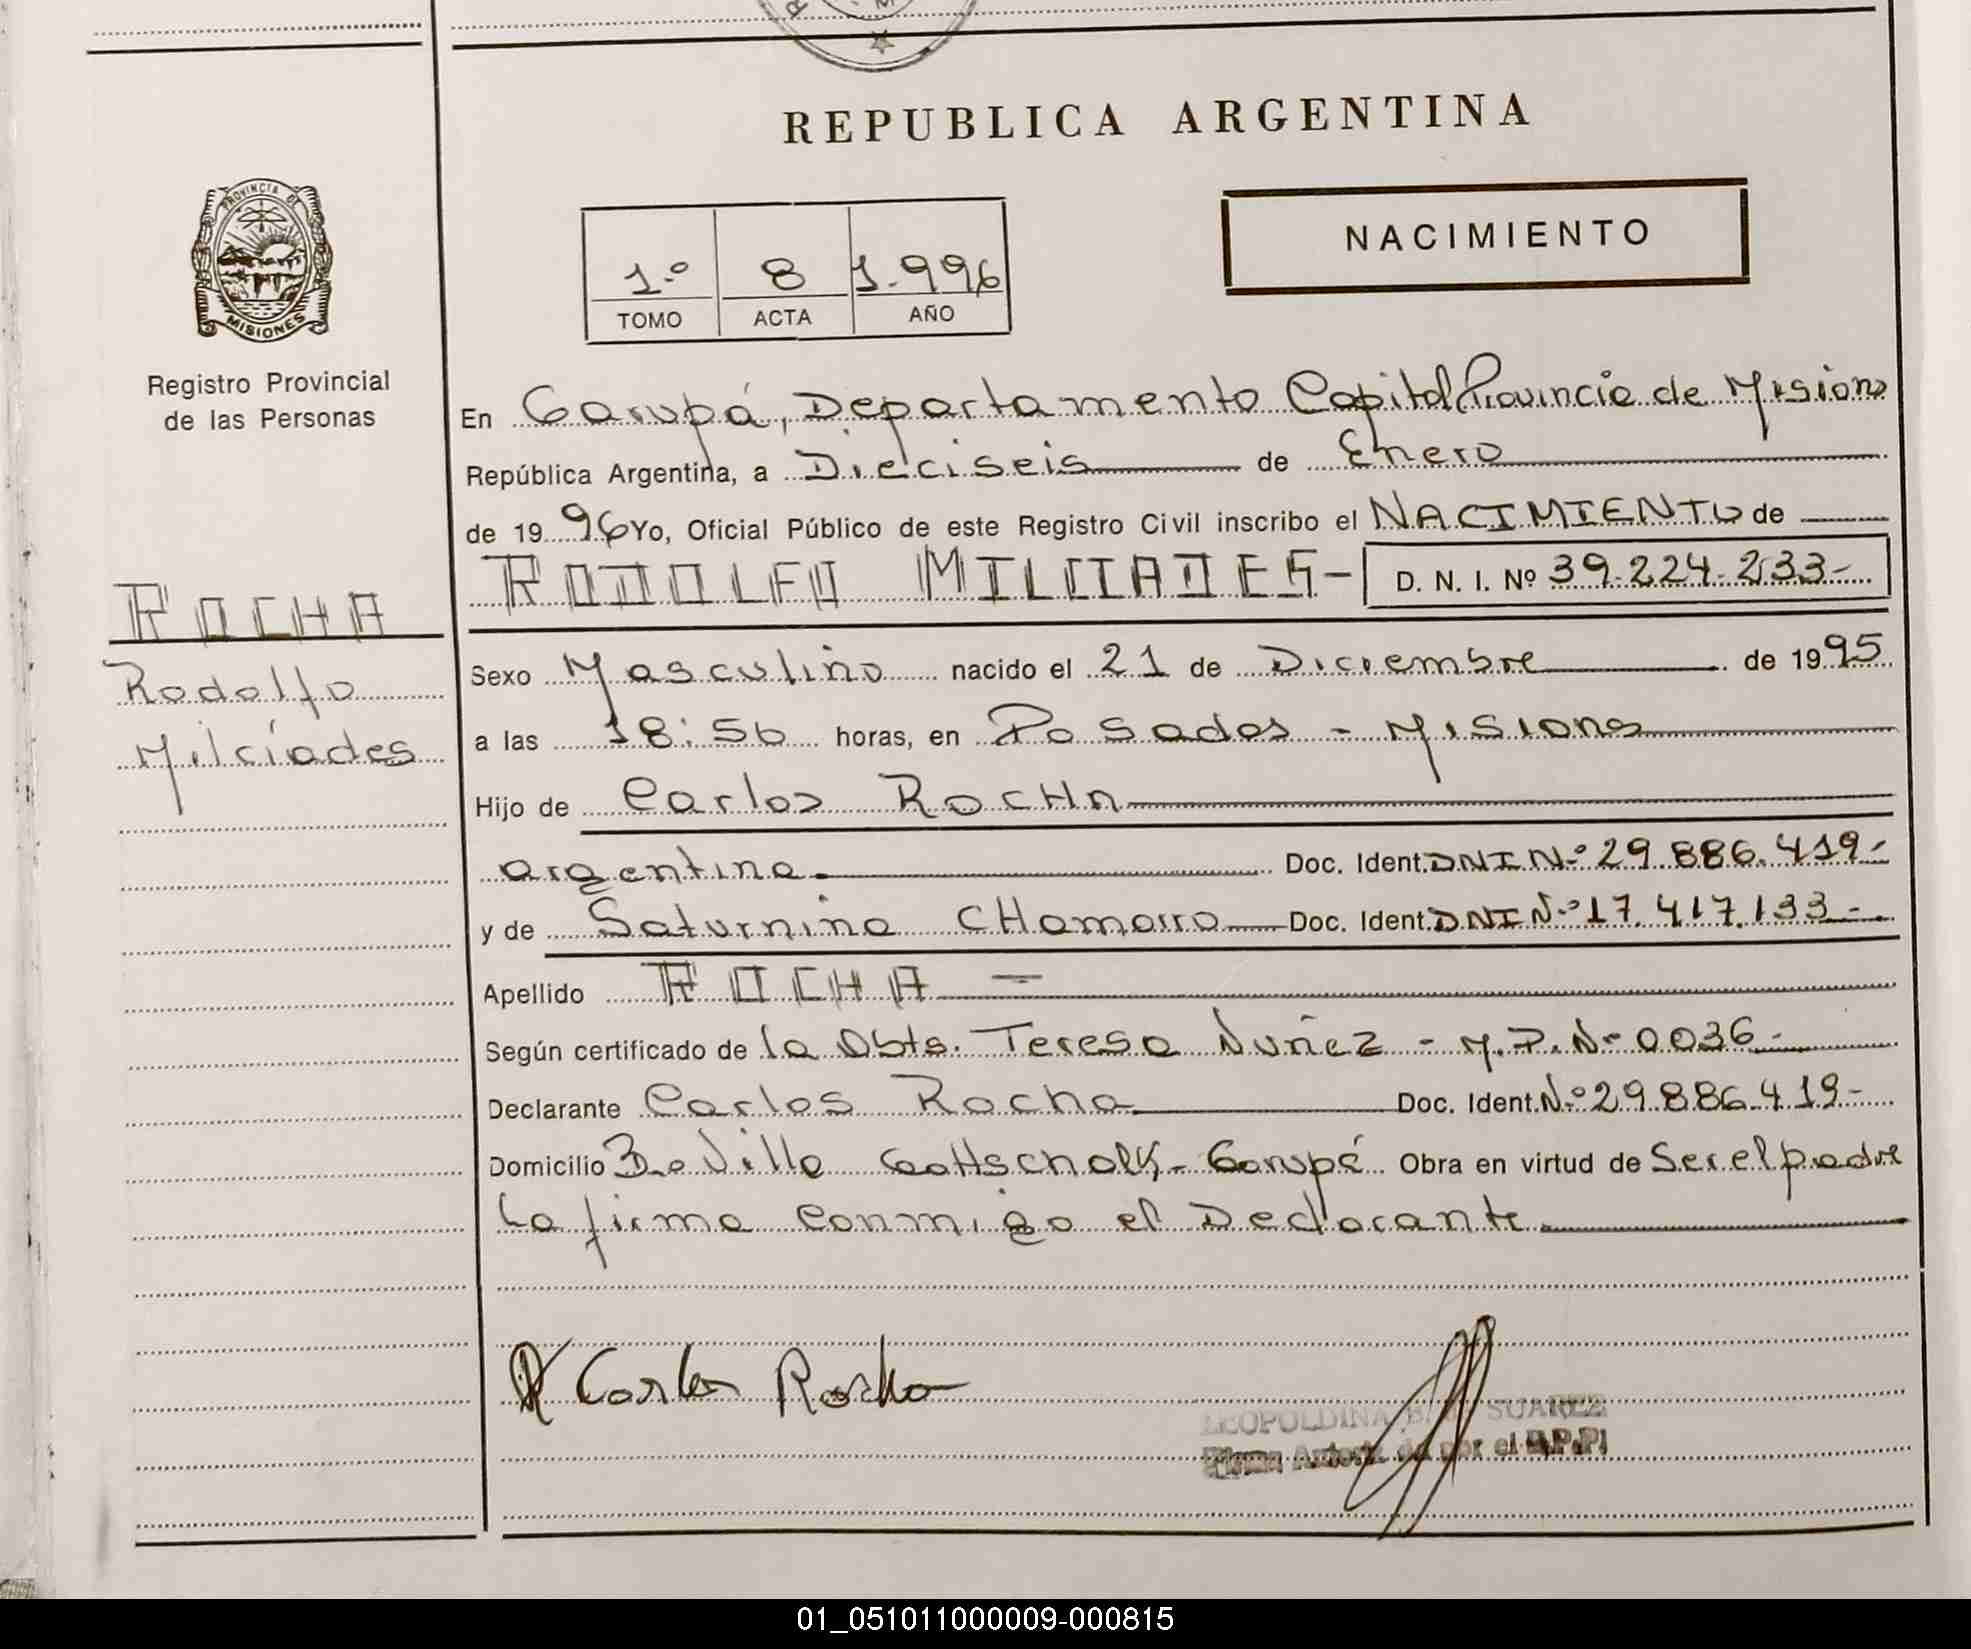 REPUBLICA ARGENTINA
PROVINCIA DE
MISIONES
Registro Provincial
de las Personas
NACIMIENTO
1.º 8 1.996
TOMO ACTA AÑO
En Garupá, Departamento Capital Provincia de Misiones
República Argentina, a Dieciseis de Enero
de 19 96 Yo, Oficial Público de este Registro Civil inscribo el NACIMIENTO de
RODOLFO MILCIADES- D. N. I. Nº 39.224.233-
ROCHA
Rodolfo
Milcíades
Sexo Masculino nacido el 21 de Diciembre de 19 95
a las 18:56 horas, en Posadas - Misiones
Hijo de Carlos ROCHA
argentina. Doc. Ident. DNI N.º 29.886.419-
y de Saturnina CHamorro Doc. Ident. DNI N.º 17.417.133-
Apellido ROCHA -
Según certificado de la Obts. Teresa Nuñez - M.P. Nº 0036-
Declarante Carlos Rocha Doc. Ident. N.º 29.886.419-
Domicilio Bº Villa Gottschalk - Garupá Obra en virtud de Ser el padre
La firma conmigo el Declarante
Carlos Rocha
LEOPOLDINA SUAREZ
por el R.P.P
01_051011000009-000815